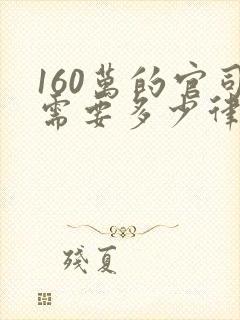 160萬的官司
需要多少律
殘夏